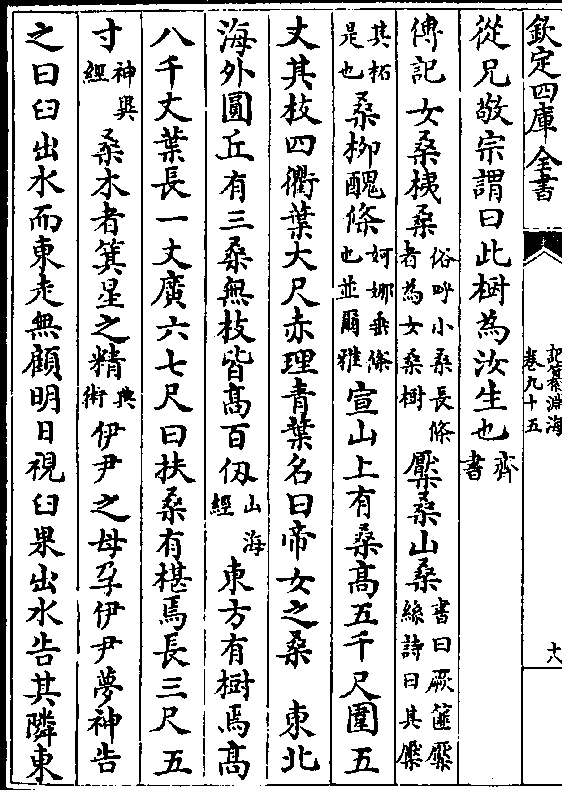 欽定四庫全書
記纂淵海
卷九十五
十八
從兄敬宗謂曰此樹為汝生也齊書
傳記 女桑桋桑俗呼小桑長條者為女桑樹檿桑山桑書曰厥篚檿絲詩曰其檿
其柘是也桑柳醜條婀娜垂條也並爾雅宣山上有桑高五千尺圍五
丈其枝四衢葉大尺赤理青葉名曰帝女之桑 東北
海外圓丘有三桑無枝皆高百仭山海經東方有樹焉高
八千丈葉長一丈廣六七尺曰扶桑有椹焉長三尺五
寸神異經桑木者箕星之精典術伊尹之母孕伊尹夢神告
之曰臼出水而東走無顧明日視臼果出水告其隣東